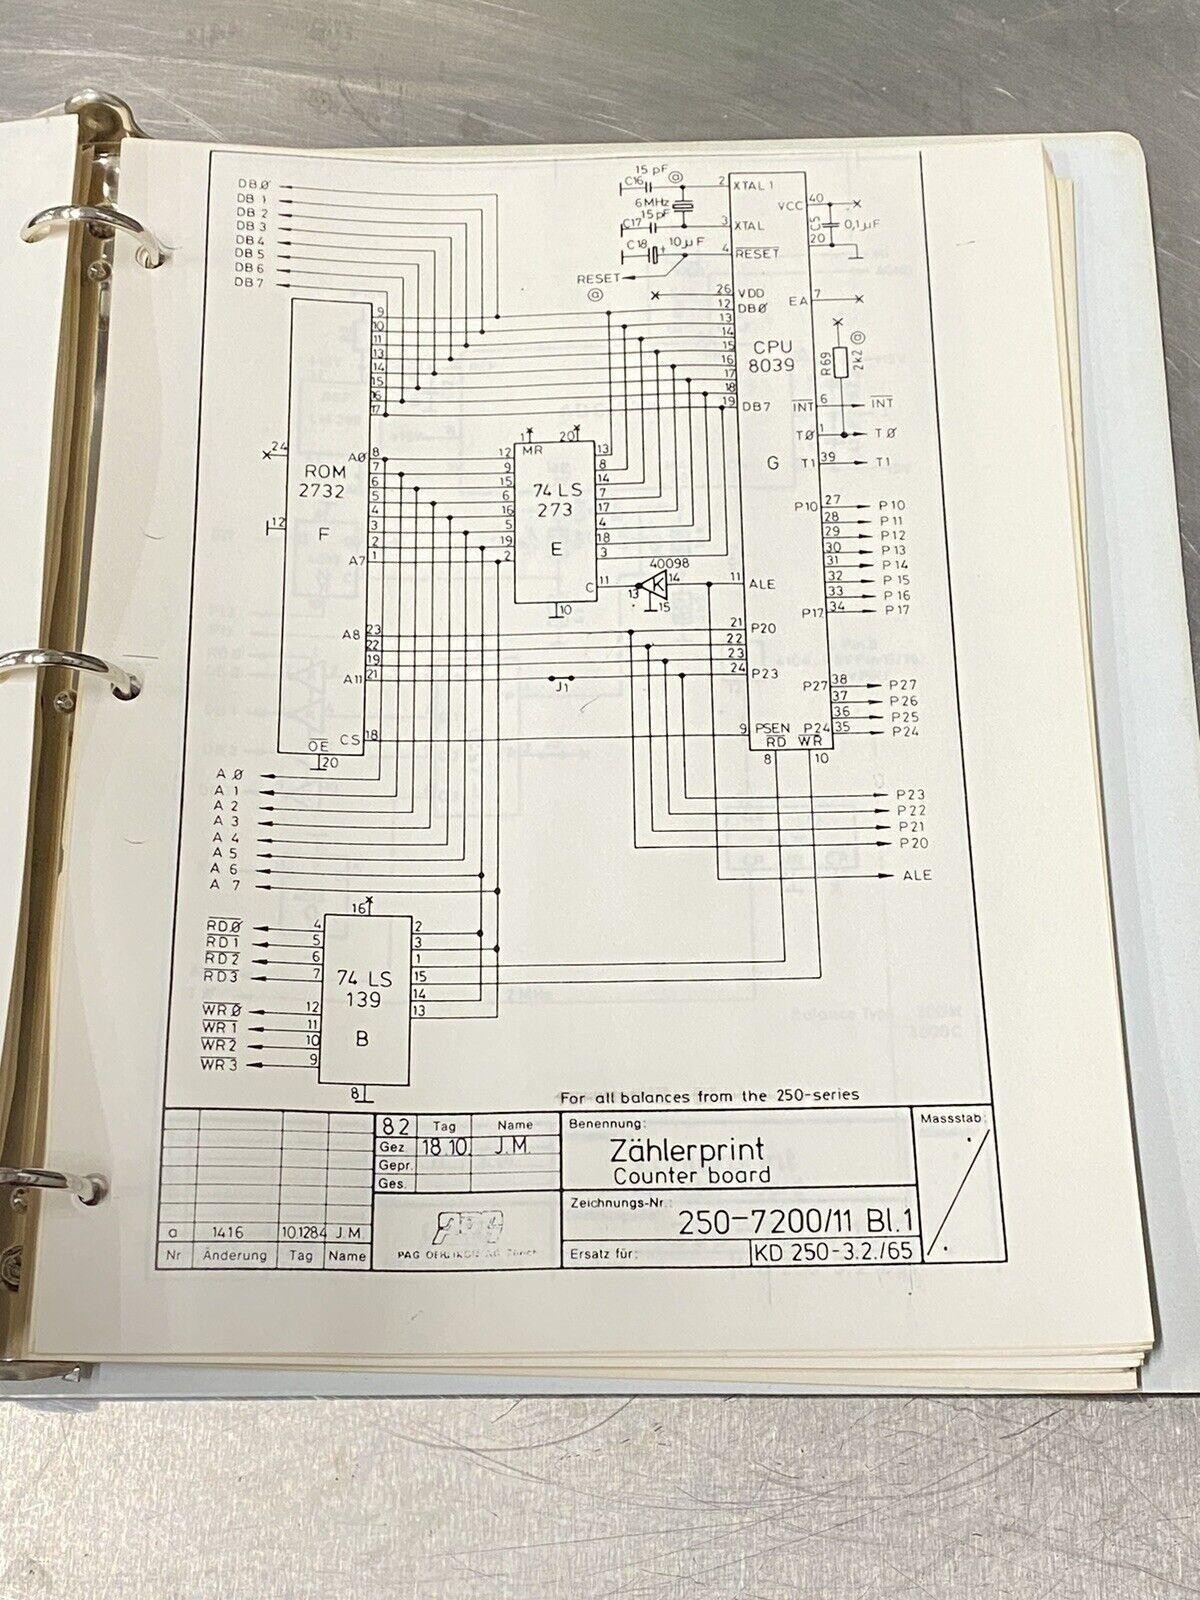 DBØ
DB 1
DB 2
DB 3
DB 4
DB 5
DB 6
DB 7
15 pF
C16
@
6MHz
15pF
C17
C18
+
10µF
RESET
@
2
XTAL 1
3
XTAL
4
RESET
26
VDD
12
DBØ
13
15
16
17
18
19
DB7
CPU
8039
G
VCC
40
C5
0,1µF
20
EA
7
R69
2k2
@
INT
6
INT
TØ
1
TØ
T1
39
T1
P10
27
P10
28
P11
29
P12
30
P13
31
P14
32
P 15
33
P 16
P17
34
P17
P27
38
P27
37
P26
36
P25
P24
35
P24
9
10
11
13
14
15
16
17
24
ROM
2732
12
F
AØ
8
7
6
5
4
3
2
A7
1
A8
23
22
19
A11
21
CS
18
OE
20
1
20
MR
12
9
15
6
16
5
19
2
74 LS
273
E
C
10
13
8
14
7
17
4
18
3
11
40098
13
K
14
15
11
ALE
21
P20
22
23
24
P23
J1
9
PSEN
RD
WR
8
10
A Ø
A 1
A 2
A 3
A 4
A 5
A 6
A 7
P23
P22
P21
P20
ALE
RDØ
RD1
RD2
RD3
WRØ
WR1
WR2
WR3
16
4
5
6
7
12
11
10
9
74 LS
139
B
8
2
3
1
15
14
13
For all balances from the 250-series
82
Tag
Name
Gez
18.10.
J.M.
Gepr.
Ges.
Benennung:
Zählerprint
Counter board
Massstab:
Zeichnungs-Nr.:
250-7200/11 Bl.1
Ersatz für:
KD 250-3.2./65
a
1416
10.1284
J.M.
Nr
Änderung
Tag
Name
PAG